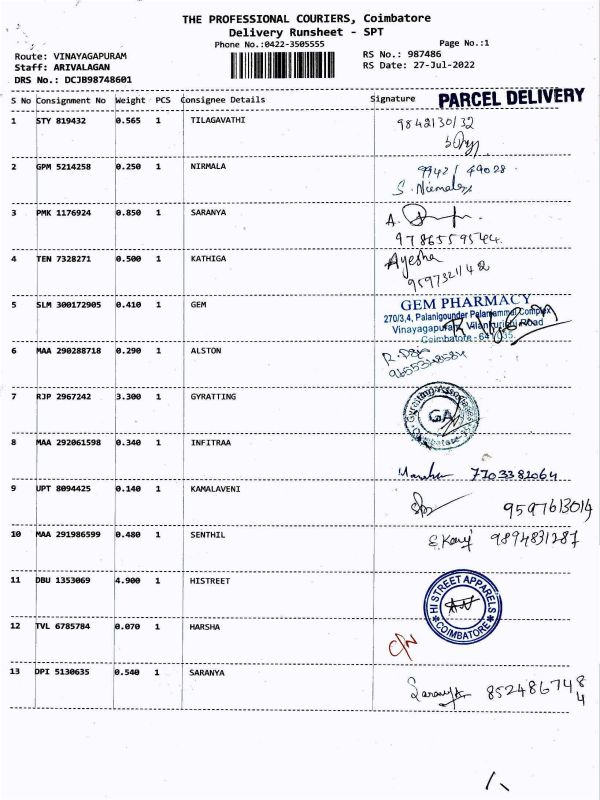 THE PROFESSIONAL COURIERS, Coimbatore
Delivery Runsheet - SPT
Phone No.:0422-3505555
Page No.:1
Route: VINAYAGAPURAM
RS No.: 987486
Staff: ARIVALAGAN
RS Date: 27-Jul-2022
DRS No.: DCJB98748601
S No Consignment No Weight PCS Consignee Details Signature PARCEL DELIVERY
1 STY 819432 0.565 1 TILAGAVATHI 9842130132
2 GPM 5214258 0.250 1 NIRMALA 9942149028
S. Nirmala
3 PMK 1176924 0.850 1 SARANYA A.
9786559544
4 TEN 7328271 0.500 1 KATHIGA Ayesha
9597321142
5 SLM 300172905 0.410 1 GEM GEM PHARMACY
270/3,4, Palanigounder Palaniammal Complex
Vinayagapuram, Vilankurichi Road
Coimbatore - 641 035.
6 MAA 290288718 0.290 1 ALSTON
7 RJP 2967242 3.300 1 GYRATTING GA
Coimbatore
8 MAA 292061598 0.340 1 INFITRAA
7703382064
9 UPT 8094425 0.140 1 KAMALAVENI 9597613014
10 MAA 291986599 0.480 1 SENTHIL 9894831287
11 DBU 1353069 4.900 1 HISTREET HI STREET APPARELS
COIMBATORE
12 TVL 6785784 0.070 1 HARSHA C/N
13 DPI 5130635 0.540 1 SARANYA Saranya 8524867484